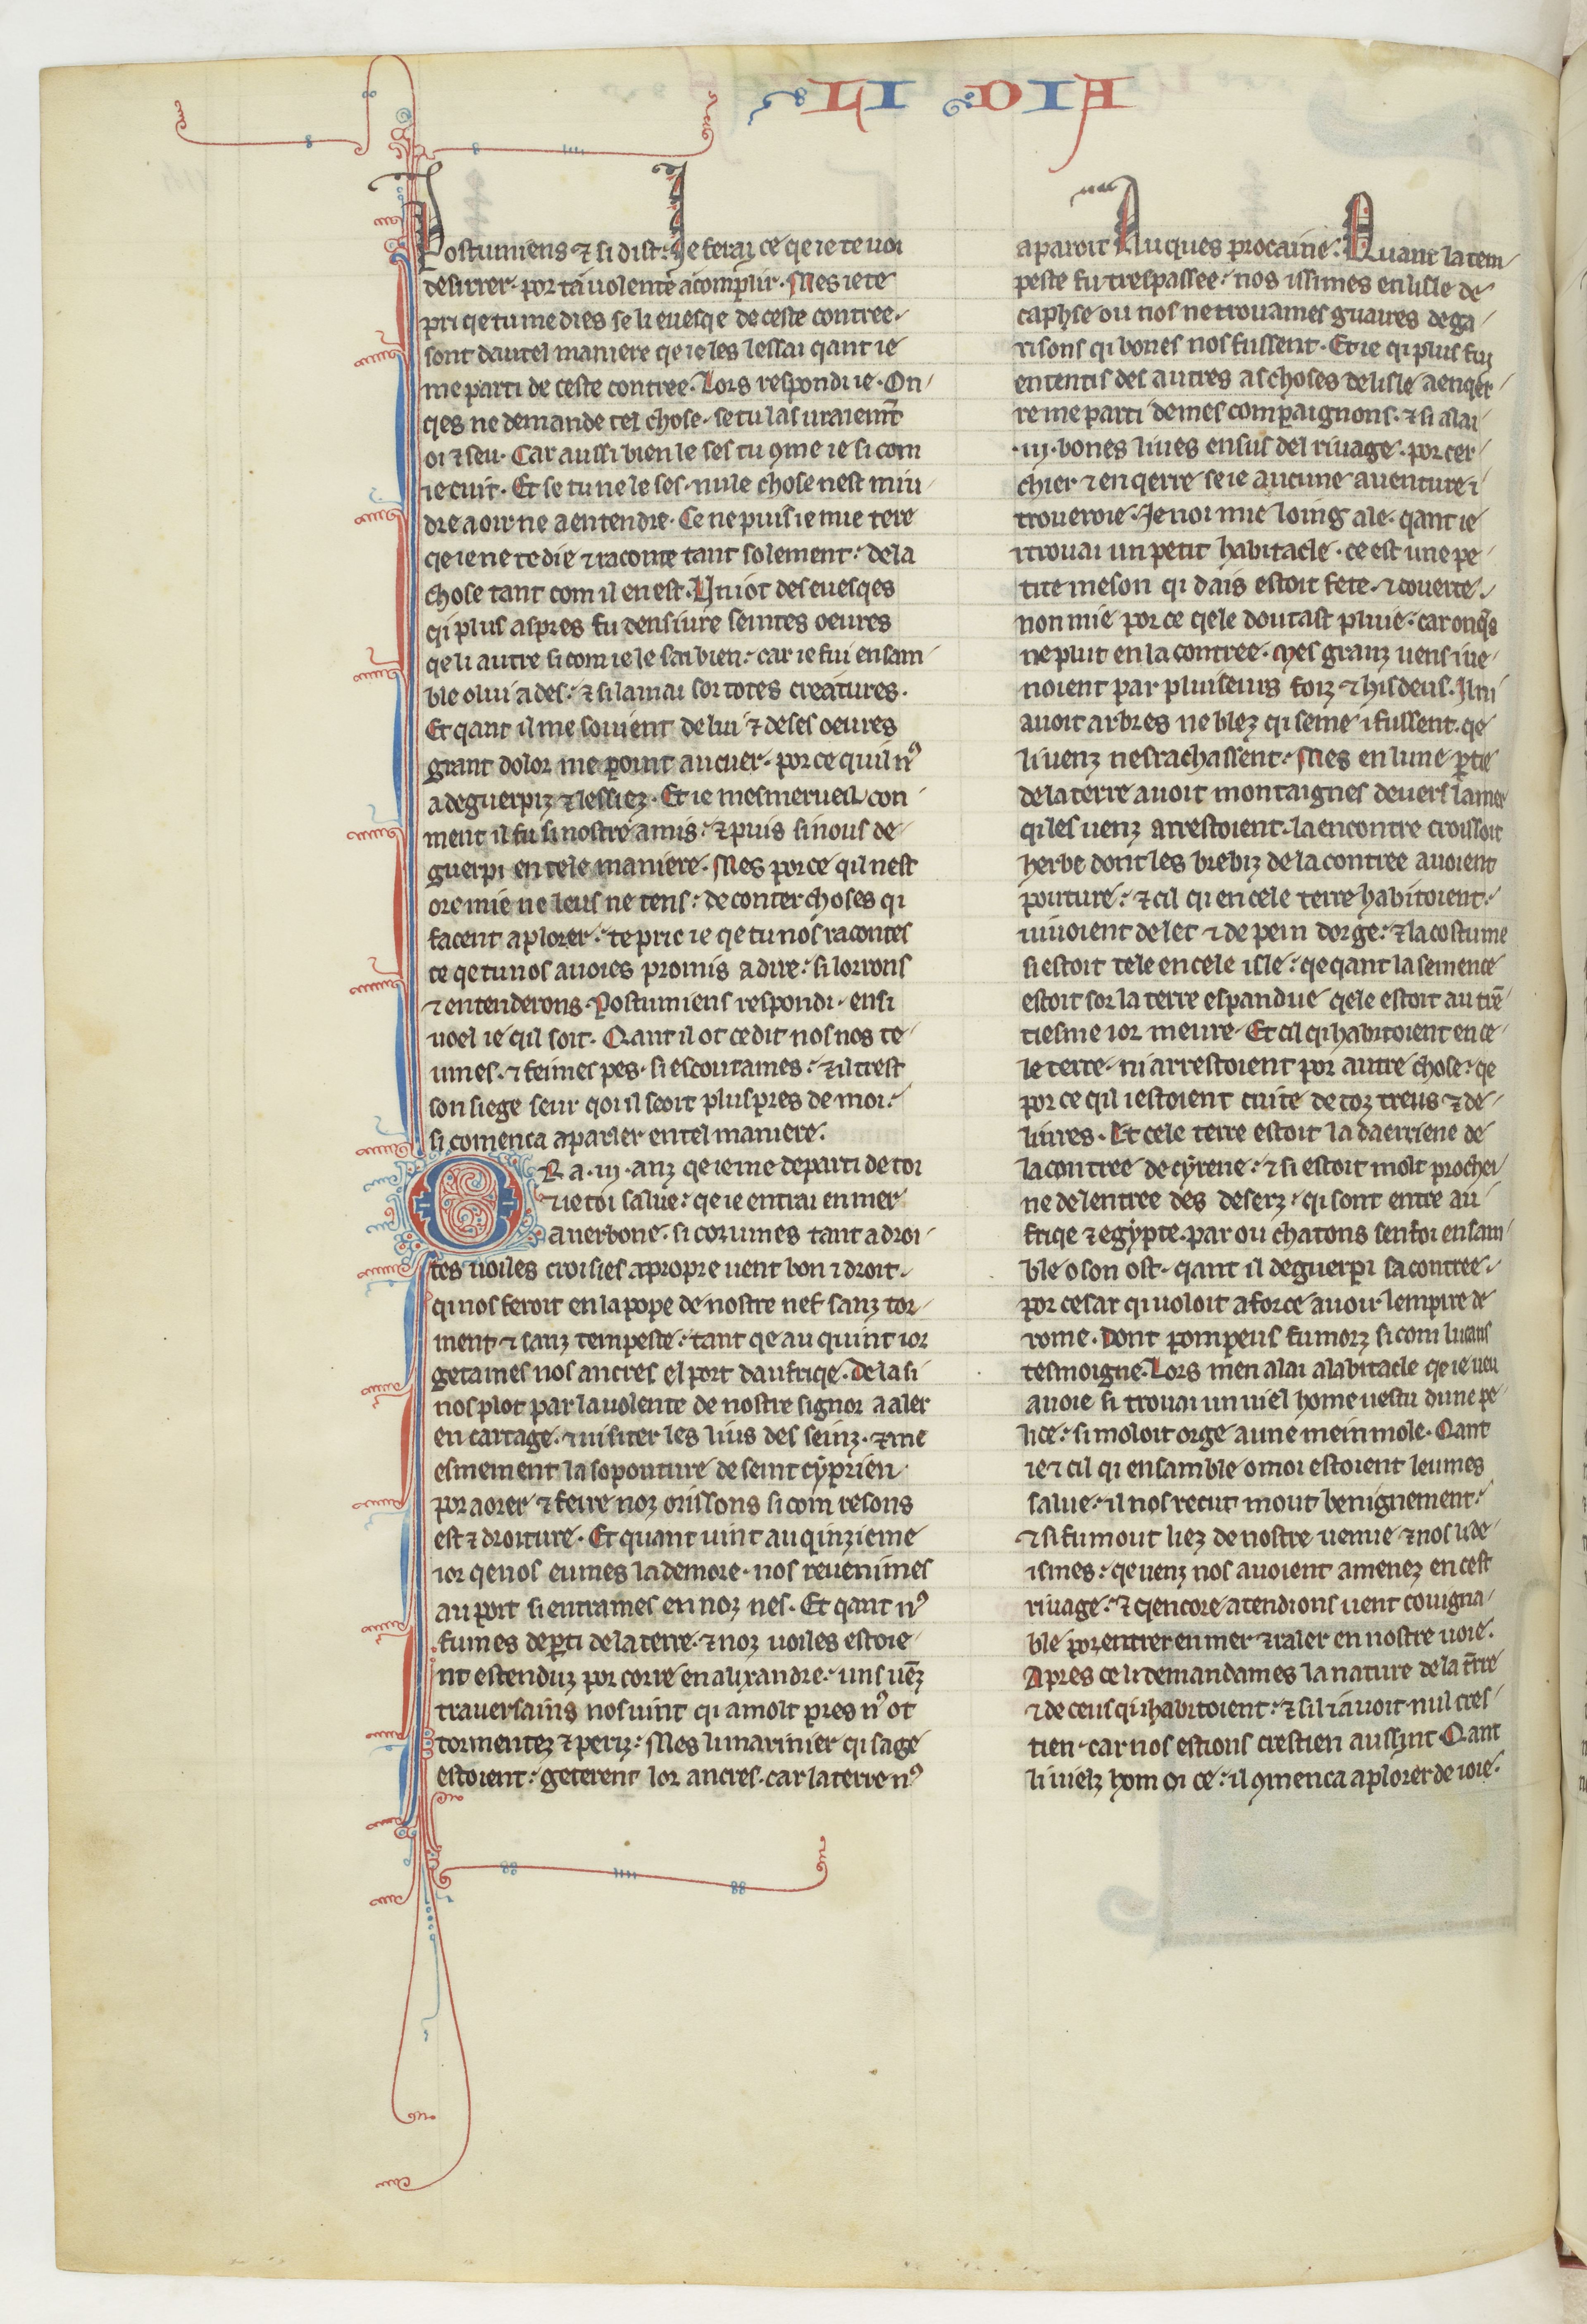 LI UIA
Postumiens ⁊ si dist. Je ferai ce qe ie te uoi
desirrer. por ta uolente acomplir. Mes ie te
pri qe tu me dies se li euesqe de ceste contree.
sont dautel maniere qe ie les lessai qant ie
me parti de ceste contree. Lors respondi ie. On
qes ne demande tel chose. se tu las uraiemt̄
oi ⁊ seu. Car aussi bien le ses tu ꝯme ie si com
ie cuit. Et se tu ne le ses. nule chose nest miu
dre a oir ne a entendre. Ce ne puis ie mie tere
qe ie ne te die ⁊ raconte tant solement. de la
chose tant com il en est. Un i ot des euesqes
qi plus aspres fu densiure seintes oeures
qe li autre si com ie le sai bien. car ie fui ensam
ble o lui ades. ⁊ si lamai sor totes creatures.
Et qant il me souient de lui ⁊ de ses oeures
grant dolor me point au cuer. por ce qui il nꝰ
a deguerpiz ⁊ lessiez. Et ie mesmerueil con
ment il fu si nostre amis. ⁊ puis si nous de
guerpi en tele maniere. Mes por ce qil nest
ore mie ne leus ne tens. de conter choses qi
facent a plorer. te prie ie qe tu nos racontes
ce qe tu nos auoies promis a dire. si lorrons
⁊ entenderons. Postumiens respondi. ensi
uoel ie qil soit. Qant il ot ce dit nos nos te
umes. ⁊ feimes pes. si escoutames. ⁊ il trest
son siege seur qoi il seoit plus pres de moi.
si comenca a parler en tel maniere.
OR a .iij. anz qe ie me departi de toi
⁊ ie toi salue. qe ie entrai en mer
a nerbone. si corumes tant a droi
tes uoiles croisies a propre uent bon ⁊ droit.
qi nos feroit en la pope de nostre nef sanz tor
ment ⁊ sanz tempeste. tant qe au quint ior
getames nos ancres el port daufriqe. De la si
nos plot par la uolente de nostre signor a aler
en cartage. ⁊ uisiter les lius des seinz. ⁊ me
esmement la sopouture de seint cyprien.
por aorer ⁊ feire noz orissons si com resons
est ⁊ droiture. Et quant uint au qinzieme
ior qe nos eumes la demore. nos reuenimes
au port si entrames en noz nes. Et qant nꝰ
fumes deꝑti de la terre. ⁊ noz uoiles estoie
nt estenduz por corre en alixandre. uns uēz
trauersains nos uint qi a molt pres nꝰ ot
tormentez ⁊ periz. Mes li marinier qi sage
estoient. geterent lor ancres. car la terre nꝰ
aparoit Auques procaine. Quant la tem
peste fu trespassee. nos issimes en lisle de
caphse ou nos ne trouames guaires de ga
risons qi bones nos fussent. Et ie qi plus fui
ententis des autres as choses de lisle a enqer
re me parti de mes compaignons. ⁊ si alai
.iij. bones liues en sus del riuage. por cer
chier ⁊ enqerre se ie aucune auenture i
troueroie. Je noi mie loing ale. qant ie
i trouai un petit habitacle. ce est une pe
tite meson qi dais estoit fete. ⁊ couerte.
non mie por ce qele doutast pluie. car onqs
ne plut en la contree. Mes granz uens i ue
noient par pluiseurs foiz ⁊ hisdeus. Il ni
auoit arbres ne blez qi seme i fussent. qe
li uenz nesrachassent. Mes en lune ꝑtie
de la terre auoit montaignes deuers la mer
qi les uenz arrestoient. la encontre croissoit
herbe dont les brebiz de la contree auoient
pouture. ⁊ cil qi en cele terre habitoient.
uiuoient de let ⁊ de pein dorge. ⁊ la costume
si estoit tele en cele isle. qe qant la semence
estoit sor la terre espandue qele estoit au trē
tiesme ior meure. Et cil qi habitoient en ce
le terre. ni arrestoient por autre chose. qe
por ce qil i estoient cuite de toz treus ⁊ de
liures. Et cele terre estoit la daerriene de
la contree de cyrene. ⁊ si estoit molt prochei
ne de lentree des deserz. qi sont entre au
friqe ⁊ egypte. par ou chatons senfoi ensam
ble o son ost. qant il deguerpi sa contree.
por cesar qi uoloit a force auoir lempire de
rome. Dont pompeus fu morz si com lucans
tesmoigne. Lors men alai a labitacle qe ie ueu
auoie si trouai un uiel home uestu dune pe
lice. si moloit orge a une mein mole. Qant
ie ⁊ cil qi ensamble o moi estoient leumes
salue. il nos recut mout benignement.
⁊ si fu mout liez de nostre uenue. ⁊ nos li de
ismes. qe uenz nos auoient amenez en cest
riuage. ⁊ qencore atendions uent couigna
ble por entrer en mer ⁊ raler en nostre uoie.
Apres ce li demandames la nature de la t̄rre
⁊ de ceus qi habitoient. ⁊ sil i auoit nul cres
tien. car nos estions crestien aussint. Qant
li uielz hom oi ce. il ꝯmenca a plorer de ioie.